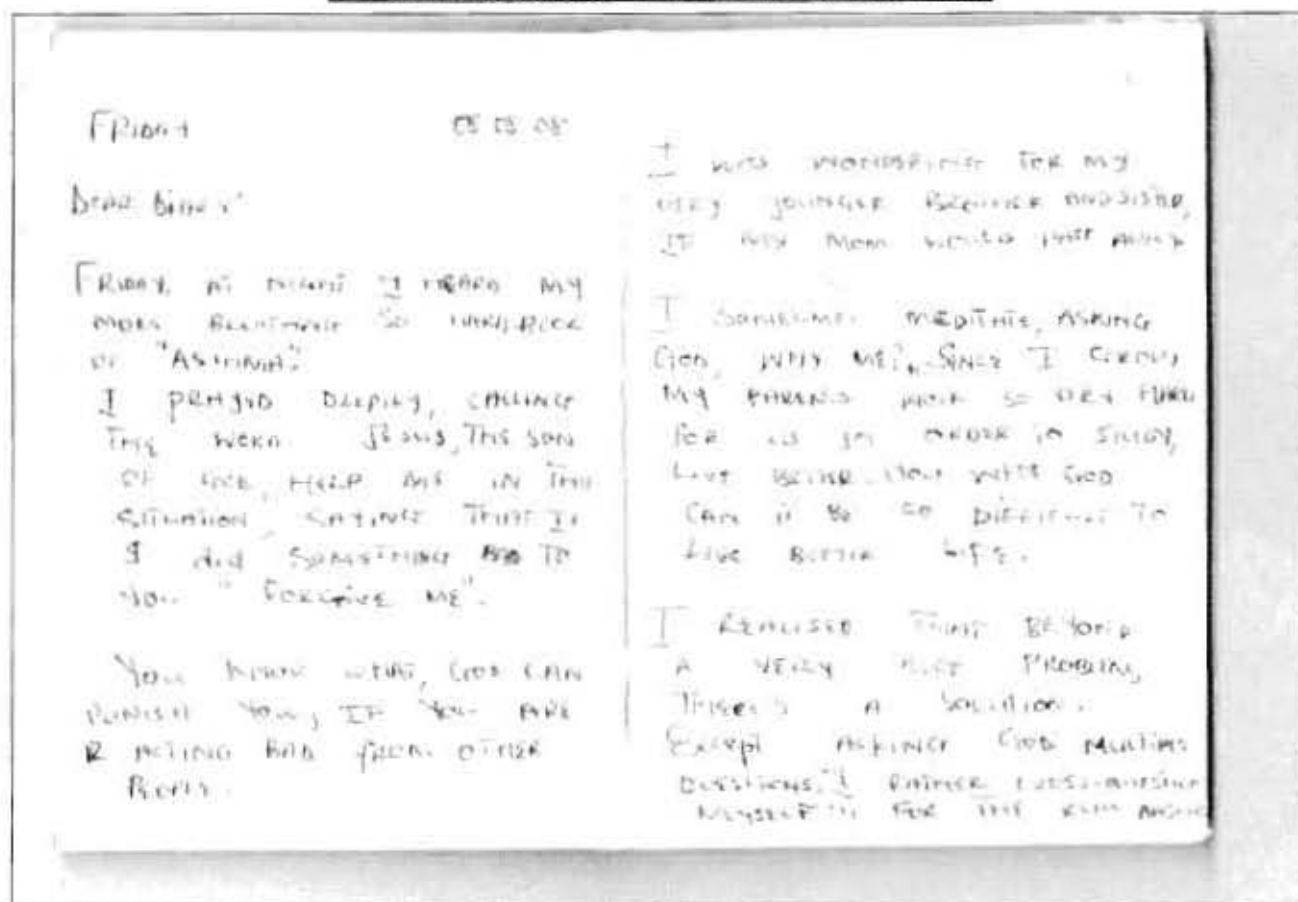 FRIDAY
DEAR DIARY
FRIDAY, AT NIGHT I HEARD MY
MOM BREATHING SO HARD,
OF "ASTHMA".
I PRAYED DEEPLY, CALLING
THE WORD JESUS, THE SON
OF GOD, HELP ME IN THIS
SITUATION, SAYING THAT IF
I did SOMETHING BAD TO
YOU "FORGIVE ME".
YOU KNOW WHAT, GOD CAN
PUNISH YOU, IF YOU ARE
R ACTING BAD FROM OTHER
I WAS WONDERING FOR MY
VERY YOUNGER BROTHER AND SISTER,
IF MY MOM WOULD PASS AWAY
I SOMETIMES MEDITATE, ASKING
GOD, WHY ME?, SINCE I GROW,
MY PARENTS WORK SO VERY HARD
FOR US IN ORDER TO STUDY,
LIVE BETTER. HOW WITH GOD
CAN it BE SO DIFFICULT TO
LIVE BETTER LIFE.
I REALISED THAT BEYOND
A VERY PROBLEM,
THERE'S A SOLUTION.
Except ASKING GOD
QUESTIONS, I RATHER
MYSELF FOR THE